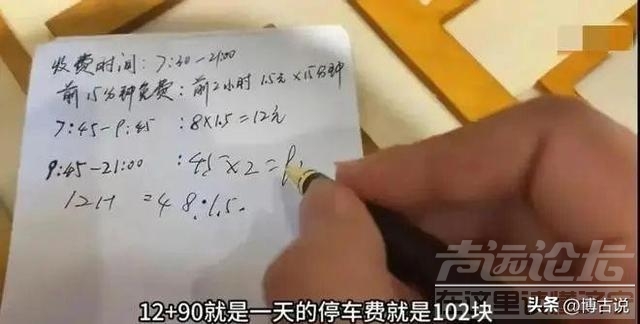 收费时间:7:30-21:00
前15分钟免费:前2小时 1.5元×15分钟
7:45-9:45 :8×1.5=12元
9:45-21:00 :45×2=9
12H =48:1.5.
声远论坛
在这里读懂清远
12+90就是一天的停车费就是102块
头条@博古说